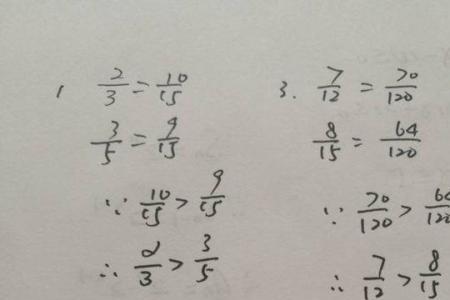 1. 2/3 = 10/15
3/5 = 9/15
∵ 10/15 > 9/15
∴ 2/3 > 3/5
3. 7/12 = 70/120
8/15 = 64/120
∵ 70/120 > 6/120
∴ 7/12 > 8/15